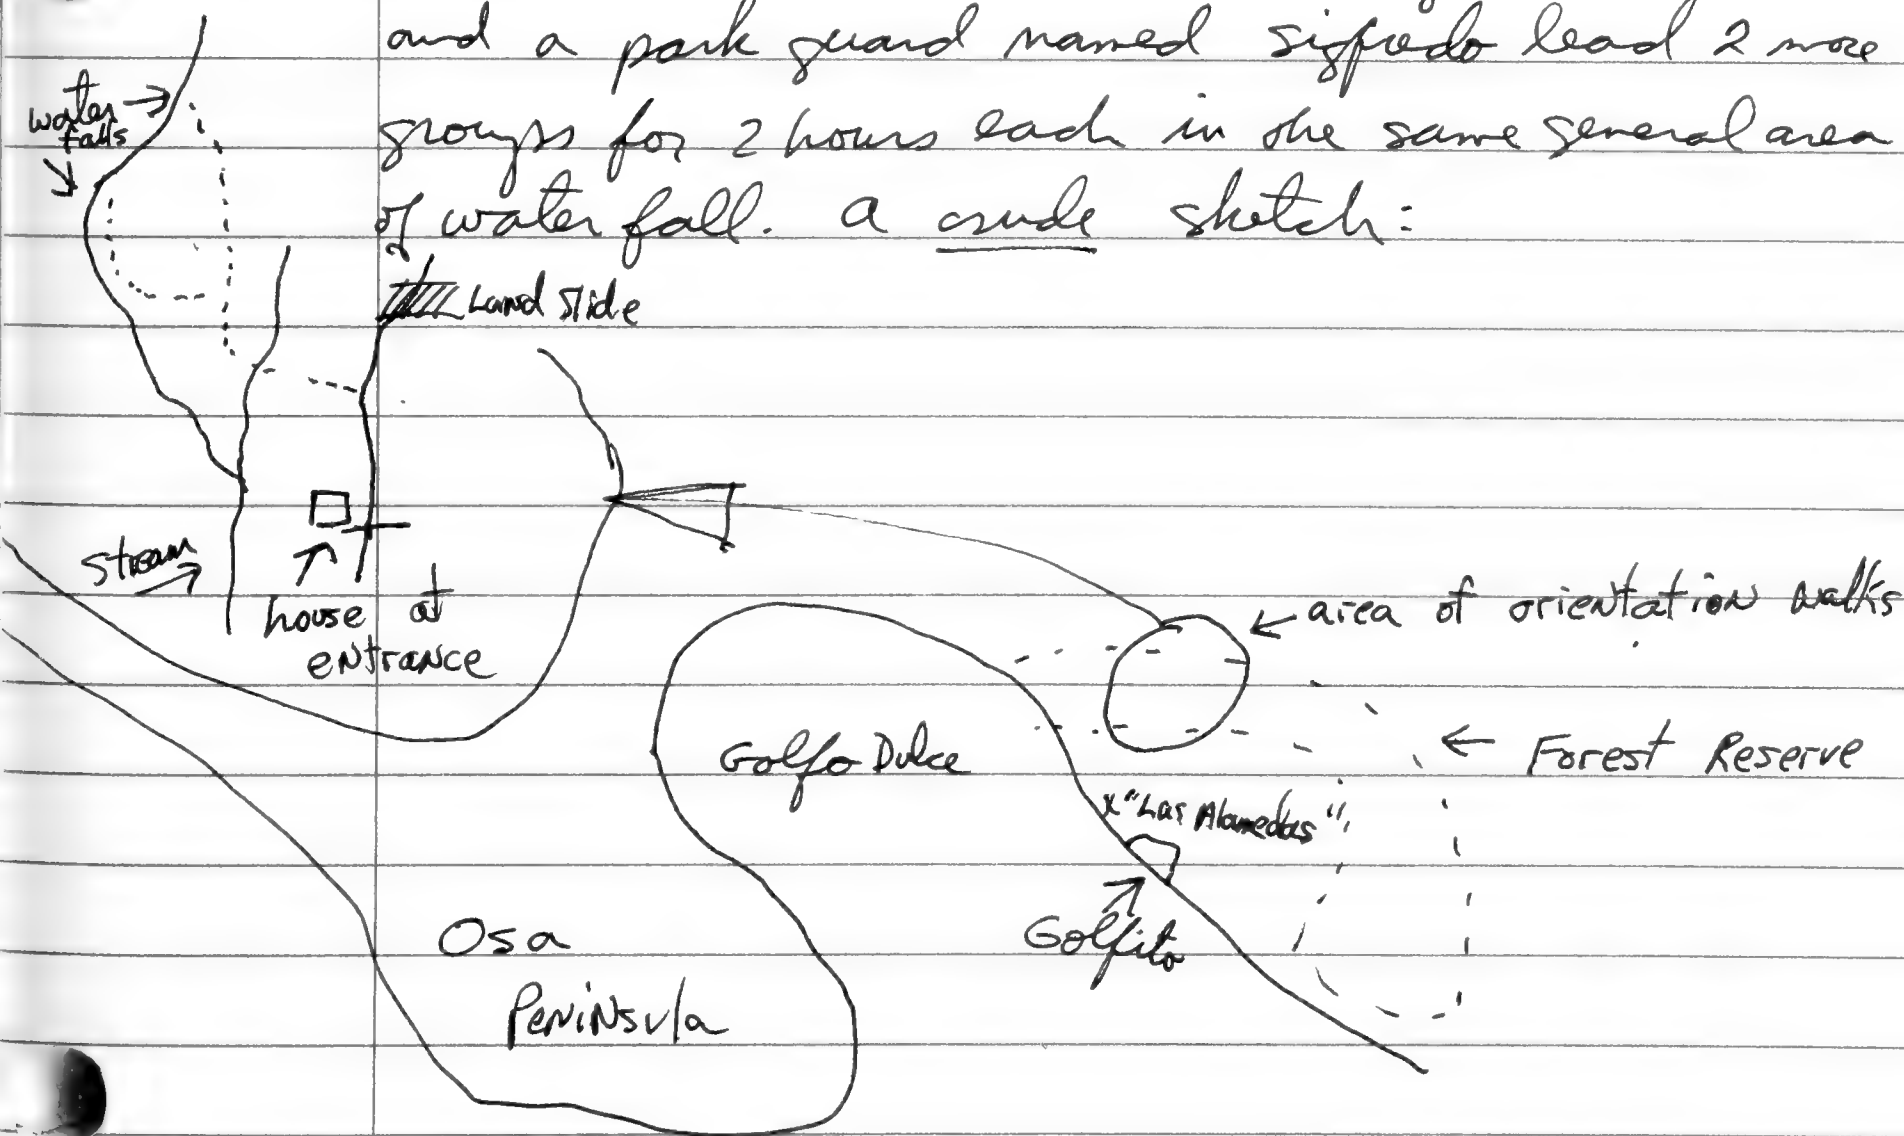 and a park guard named sigfredo lead 2 more
groups for 2 hours each in the same general area
of water fall. a crude sketch:
water
falls
Land Slide
stream
house at
entrance
area of orientation walks
Golfo Dulce
Forest Reserve
x "Las Alamedas"
Golfito
Osa
Peninsula